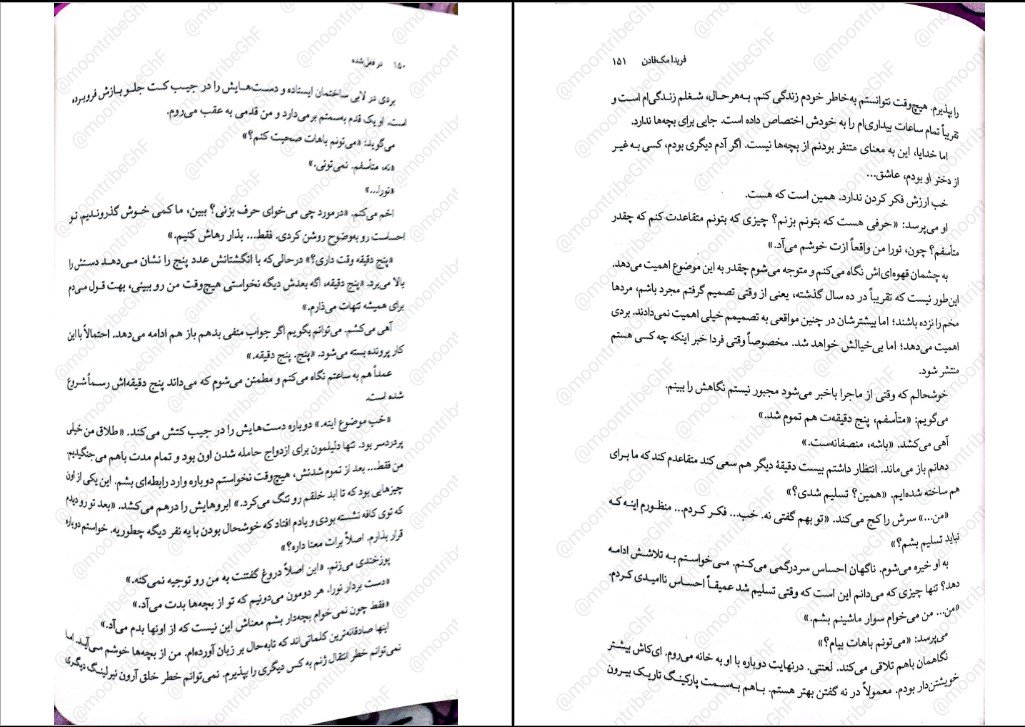 ۱۵۰ در قفل‌شده
بردی در لابی ساختمان ایستاده و دست‌هایش را در جیب کت جلو بازش فروبرده
است. او یک قدم به‌سمتم برمی‌دارد و من قدمی به عقب می‌روم.
می‌گوید: «می‌تونم باهات صحبت کنم؟»
«نه. متأسفم. نمی‌تونی.»
«نورا...»
اخم می‌کنم. «درمورد چی می‌خوای حرف بزنی؟ ببین، ما کمی خوش گذروندیم. تو
احساست رو به‌وضوح روشن کردی. فقط... بذار رهاش کنیم.»
«پنج دقیقه وقت داری؟» درحالی‌که با انگشتانش عدد پنج را نشان می‌دهد دستش را
بالا می‌برد. «پنج دقیقه. اگه بعدش دیگه نخواستی هیچ‌وقت من رو ببینی، بهت قول می‌دم
برای همیشه تنهات می‌ذارم.»
آهی می‌کشم. می‌توانم بگویم اگر جواب منفی بدهم باز هم ادامه می‌دهد. احتمالاً با این
کار پرونده بسته می‌شود. «پنج. پنج دقیقه.»
عمداً هم به ساعتم نگاه می‌کنم و مطمئن می‌شوم که می‌داند پنج دقیقه‌اش رسماً شروع
شده است.
«خب موضوع اینه.» دوباره دست‌هایش را در جیب کتش می‌کند. «طلاق من خیلی
پردردسر بود. تنها دلیلمون برای ازدواج حامله شدن اون بود و تمام مدت باهم می‌جنگیدیم.
من فقط... بعد از تموم شدنش، هیچ‌وقت نخواستم دوباره وارد رابطه‌ای بشم. این یکی از اون
چیزهایی بود که تا ابد خلقم رو تنگ می‌کرد.» ابروهایش را درهم می‌کشد. «بعد تو رو دیدم
که توی کافه نشسته بودی و یادم افتاد که خوشحال بودن با یه نفر دیگه چطوریه. خواستم دوباره
قرار بذارم. اصلاً برات معنا داره؟»
پوزخندی می‌زنم. «این اصلاً دروغ گفتنت به من رو توجیه نمی‌کنه.»
«دست بردار نورا. هر دومون می‌دونیم که تو از بچه‌ها بدت می‌آد.»
«فقط چون نمی‌خوام بچه‌دار بشم معناش این نیست که از اونها بدم می‌آد.»
اینها صادقانه‌ترین کلماتی‌اند که تابه‌حال بر زبان آورده‌ام. من از بچه‌ها خوشم می‌آید. اما
نمی‌توانم خطر انتقال ژنم به کس دیگری را بپذیرم. نمی‌توانم خطر خلق آرون نیرلینگ دیگری
فریدا مک‌فادن ۱۵۱
را بپذیرم. هیچ‌وقت نتوانستم به‌خاطر خودم زندگی کنم. به‌هرحال، شغلم زندگی‌ام است و
تقریباً تمام ساعات بیداری‌ام را به خودش اختصاص داده است. جایی برای بچه‌ها ندارد.
اما خدایا، این به معنای متنفر بودنم از بچه‌ها نیست. اگر آدم دیگری بودم، کسی به غیر
از دختر او بودم، عاشق...
خب ارزش فکر کردن ندارد. همین است که هست.
او می‌پرسد: «حرفی هست که بتونم بزنم؟ چیزی که بتونم متقاعدت کنم که چقدر
متأسفم؟ چون، نورا من واقعاً ازت خوشم می‌آد.»
به چشمان قهوه‌ای‌اش نگاه می‌کنم و متوجه می‌شوم چقدر به این موضوع اهمیت می‌دهد.
این‌طور نیست که تقریباً در ده سال گذشته، یعنی از وقتی تصمیم گرفتم مجرد باشم، مردها
مخم را نزده باشند؛ اما بیشترشان در چنین مواقعی به تصمیمم خیلی اهمیت نمی‌دادند. بردی
اهمیت می‌دهد؛ اما بی‌خیالش خواهد شد. مخصوصاً وقتی فردا خبر اینکه چه کسی هستم
منتشر شود.
خوشحالم که وقتی از ماجرا باخبر می‌شود مجبور نیستم نگاهش را ببینم.
می‌گویم: «متأسفم، پنج دقیقه‌ت هم تموم شد.»
آهی می‌کشد. «باشه، منصفانه‌ست.»
دهانم باز می‌ماند. انتظار داشتم بیست دقیقهٔ دیگر هم سعی کند متقاعدم کند که ما برای
هم ساخته شده‌ایم. «همین؟ تسلیم شدی؟»
«من...» سرش را کج می‌کند. «تو بهم گفتی نه. خب... فکر کردم... منظورم اینه که
نباید تسلیم بشم؟»
به او خیره می‌شوم. ناگهان احساس سردرگمی می‌کنم. می‌خواستم به تلاشش ادامه
دهد؟ تنها چیزی که می‌دانم این است که وقتی تسلیم شد عمیقاً احساس ناامیدی کردم.
«من... من می‌خوام سوار ماشینم بشم.»
می‌پرسد: «می‌تونم باهات بیام؟»
نگاهمان باهم تلاقی می‌کند. لعنتی. درنهایت دوباره با او به خانه می‌روم. ای‌کاش بیشتر
خویشتن‌دار بودم. معمولاً در نه گفتن بهتر هستم. باهم به‌سمت پارکینگ تاریک بیرون
@moontribeGhF